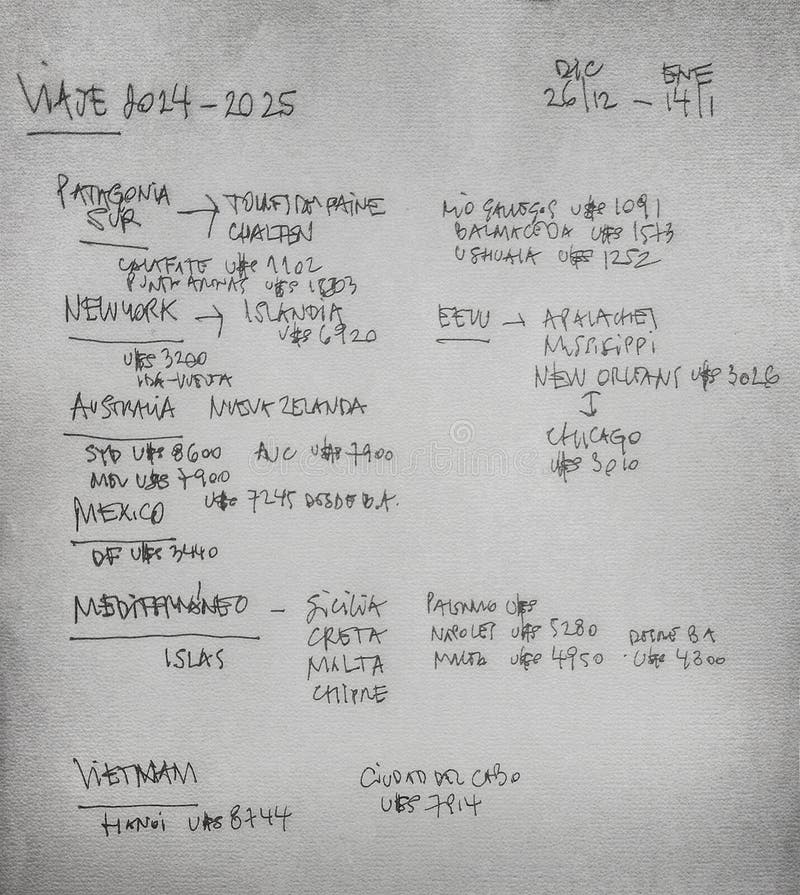 VIAJE 2024 - 2025
DIC ENE
26/12 - 14/1
PATAGONIA
SUR → TORRES DEL PAINE
CHALTEN
RIO GALLEGOS U$S 1091
BALMACEDA U$S 1573
USHUAIA U$S 1252
CALAFATE U$S 1102
PUNTA ARENAS U$S
NEW YORK → ISLANDIA
U$S 6920
U$S 3200
IDA-VUELTA
EEUU → APALACHES
MISSISIPPI
NEW ORLEANS U$S 3026
CHICAGO
U$S 3010
AUSTRALIA NUEVA ZELANDA
SYD U$S 8600 AUC U$S 7900
MEL U$S 7900
U$S 7245 DESDE B.A.
MEXICO
DF U$S 3440
MEDITERRÁNEO - SICILIA
CRETA
MALTA
CHIPRE
ISLAS
PALERMO U$S
NAPOLES U$S 5280
MALTA U$S 4950
DESDE BA
U$S 4300
VIETNAM
HANOI U$S 8744
CIUDAD DEL CABO
U$S 7914
dreamstime